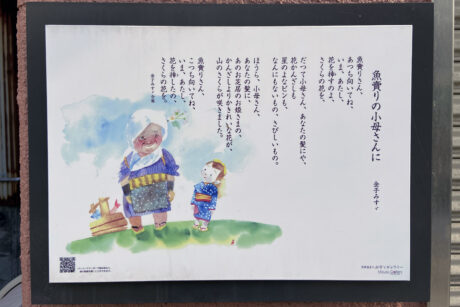 魚売りの小母さんに
金子みすゞ
魚売りさん、
あっち向いてね、
いま、あたし、
花を挿すのよ、
さくらの花を。
だって小母さん、あなたの髪にや、
花かんざしも
星のようなピンも、
なんにもないもの、さびしいもの。
ほうら、小母さん、
あなたの髪に、
あのお芝居のお姫さまの、
かんざしよりかきれいな花が、
山のさくらが咲きました。
魚売りさん、
こっち向いてね、
いま、あたし、
花を挿したの、
さくらの花を。